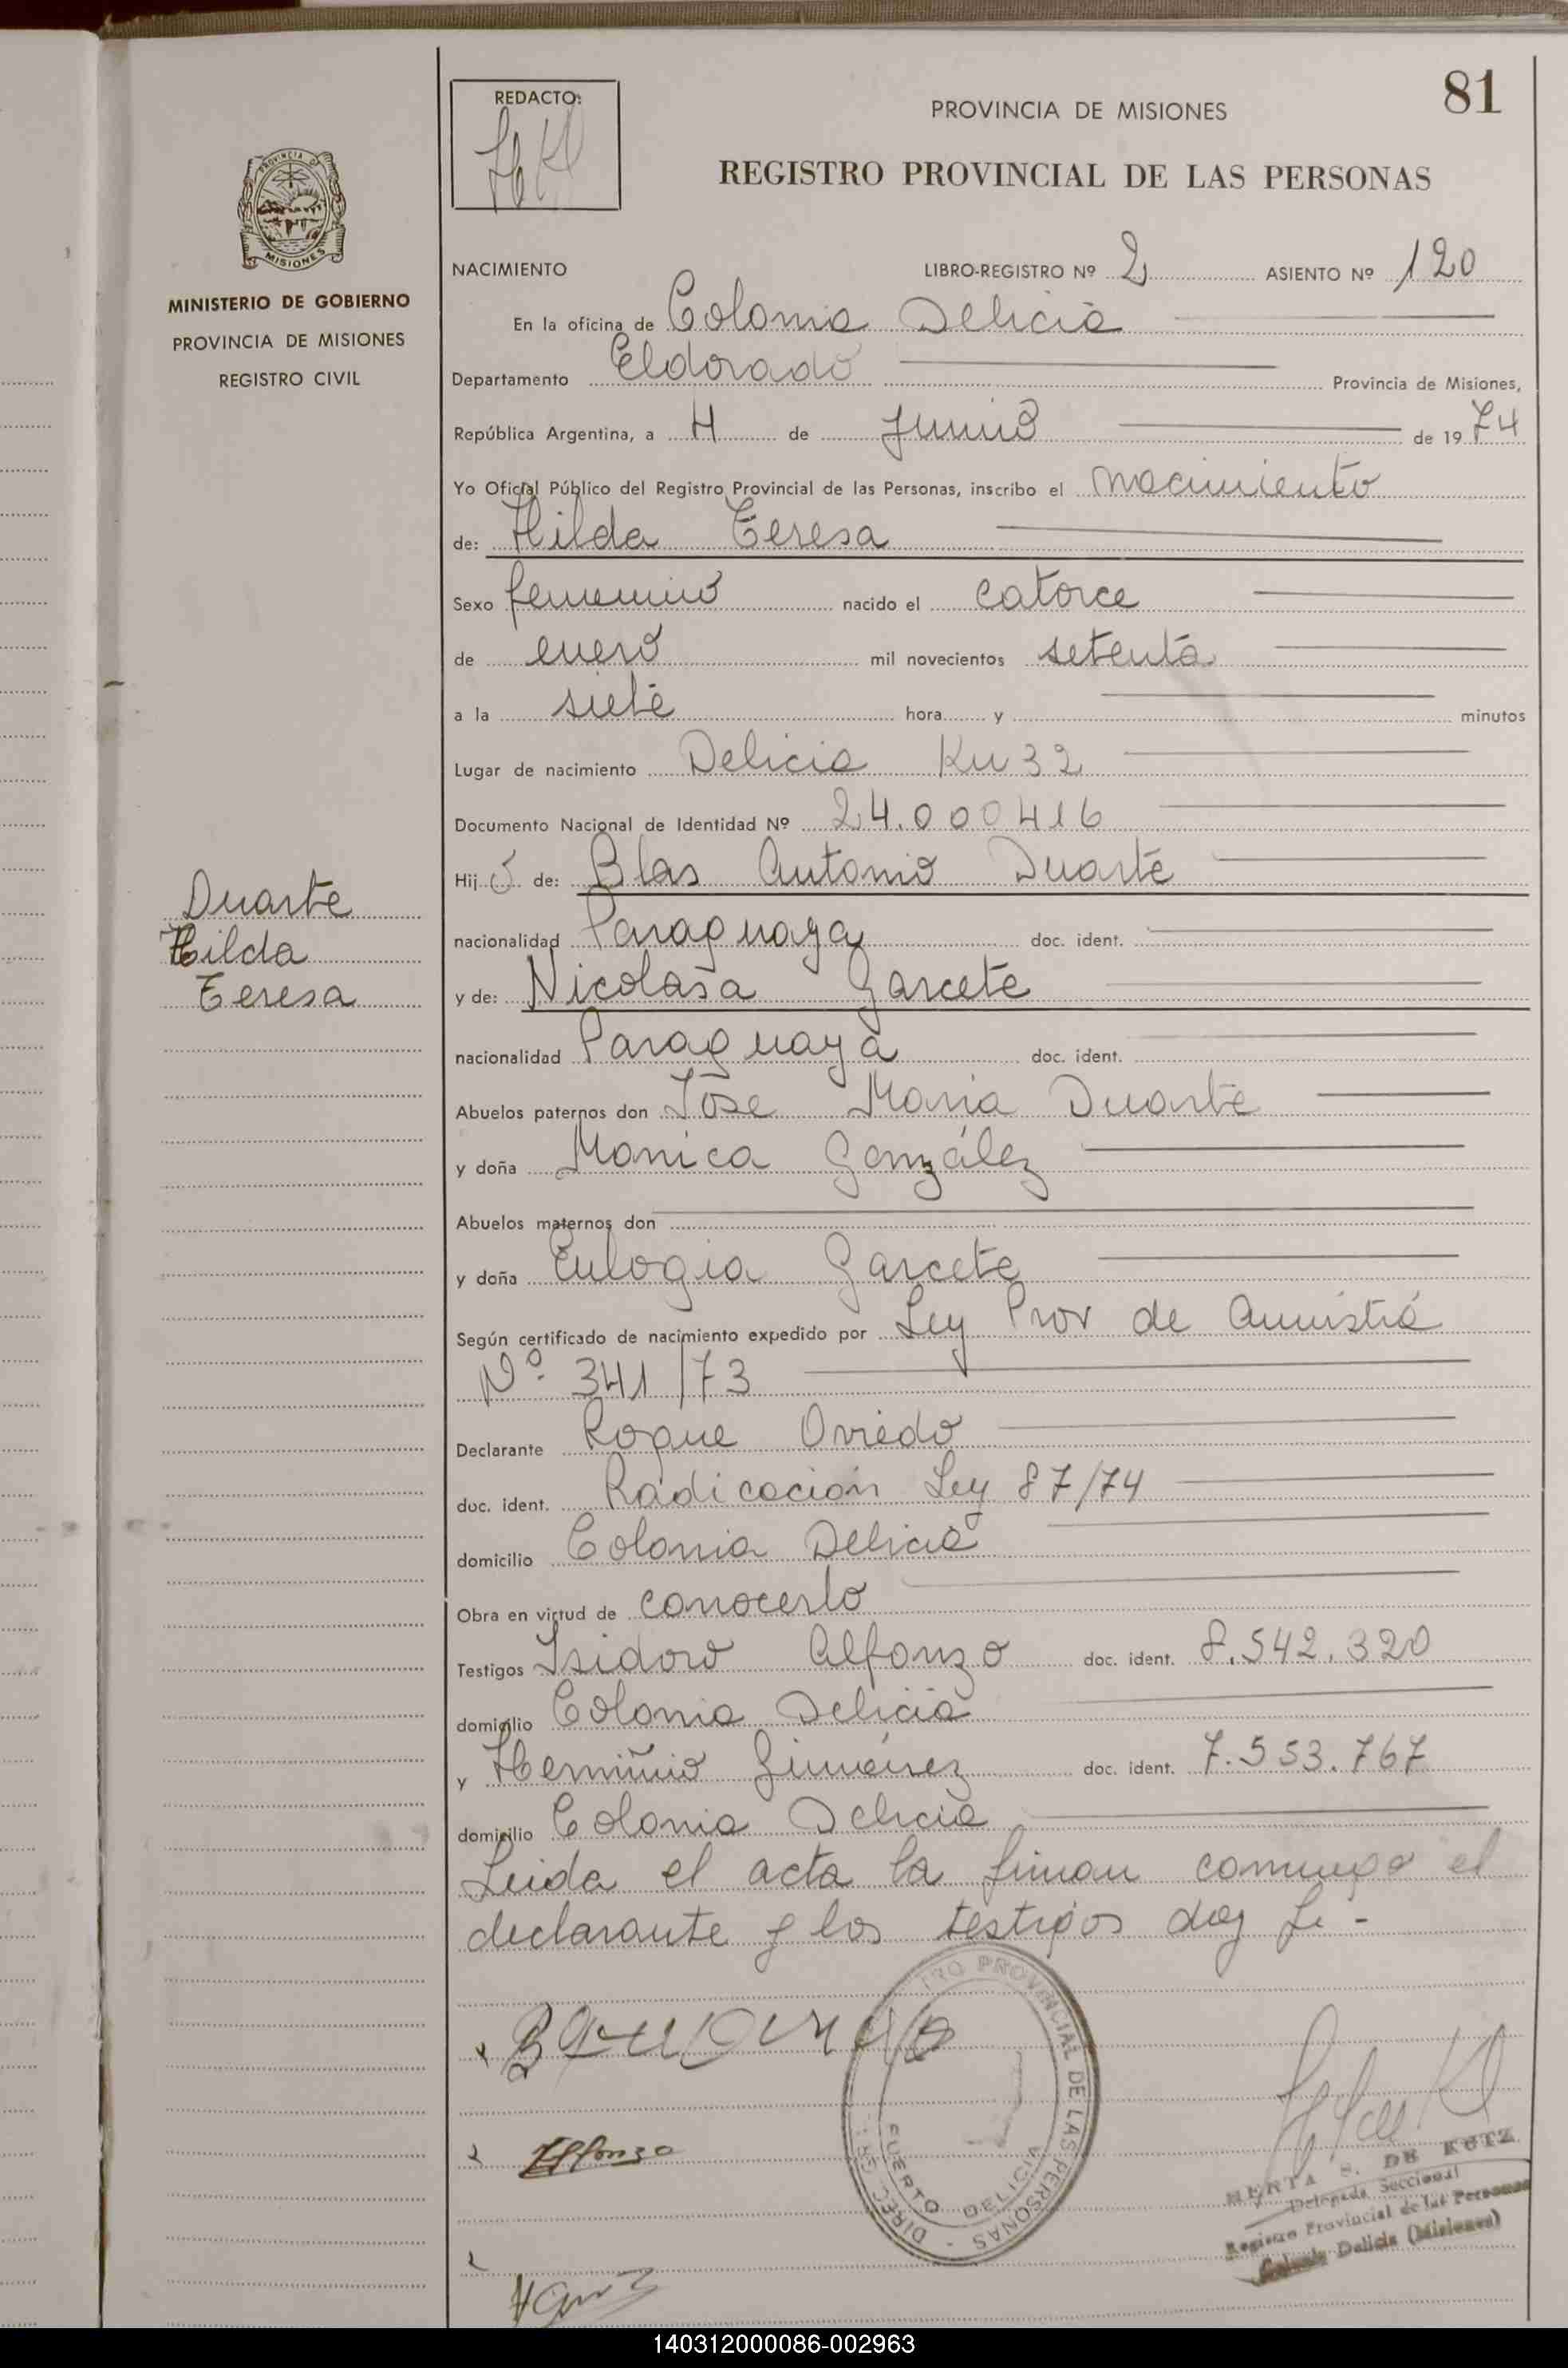 81
REDACTO:
PROVINCIA DE MISIONES
REGISTRO PROVINCIAL DE LAS PERSONAS
PROVINCIA DE
MISIONES
MINISTERIO DE GOBIERNO
PROVINCIA DE MISIONES
REGISTRO CIVIL
NACIMIENTO LIBRO-REGISTRO Nº 2 ASIENTO Nº 120
En la oficina de Colonia Delicia
Departamento Eldorado Provincia de Misiones,
República Argentina, a 4 de Junio de 1974
Yo Oficial Público del Registro Provincial de las Personas, inscribo el nacimiento
de: Hilda Teresa
Sexo femenino nacido el catorce
de enero mil novecientos setenta
a la siete hora y minutos
Lugar de nacimiento Delicia Km 32
Documento Nacional de Identidad Nº 24.000416
Hij de: Blas Antonio Duarte
Duarte
Hilda
Teresa
nacionalidad Paraguaya doc. ident.
y de: Nicolasa Garcete
nacionalidad Paraguaya doc. ident.
Abuelos paternos don José Maria Duarte
y doña Monica González
Abuelos maternos don
y doña Eulogia Garcete
Según certificado de nacimiento expedido por Ley Prov de Amnistia
Nº 341/73
Declarante Roque Oviedo
doc. ident. Radicación Ley 87/74
domicilio Colonia Delicia
Obra en virtud de conocerlo
Testigos Isidoro Alfonzo doc. ident. 8.542.320
domicilio Colonia Delicia
y Herminio Giménez doc. ident. 7.553.767
domicilio Colonia Delicia
Leida el acta la firman conmigo el
declarante y los testigos doy fe -
PROVINCIAL DE LAS PERSONAS - DIREC. GRL.
PUERTO DELICIA
Alfonzo
HERTA S. DE KUTZ
Delegada Seccional
Registro Provincial de las Personas
Colonia Delicia (Misiones)
140312000086-002963